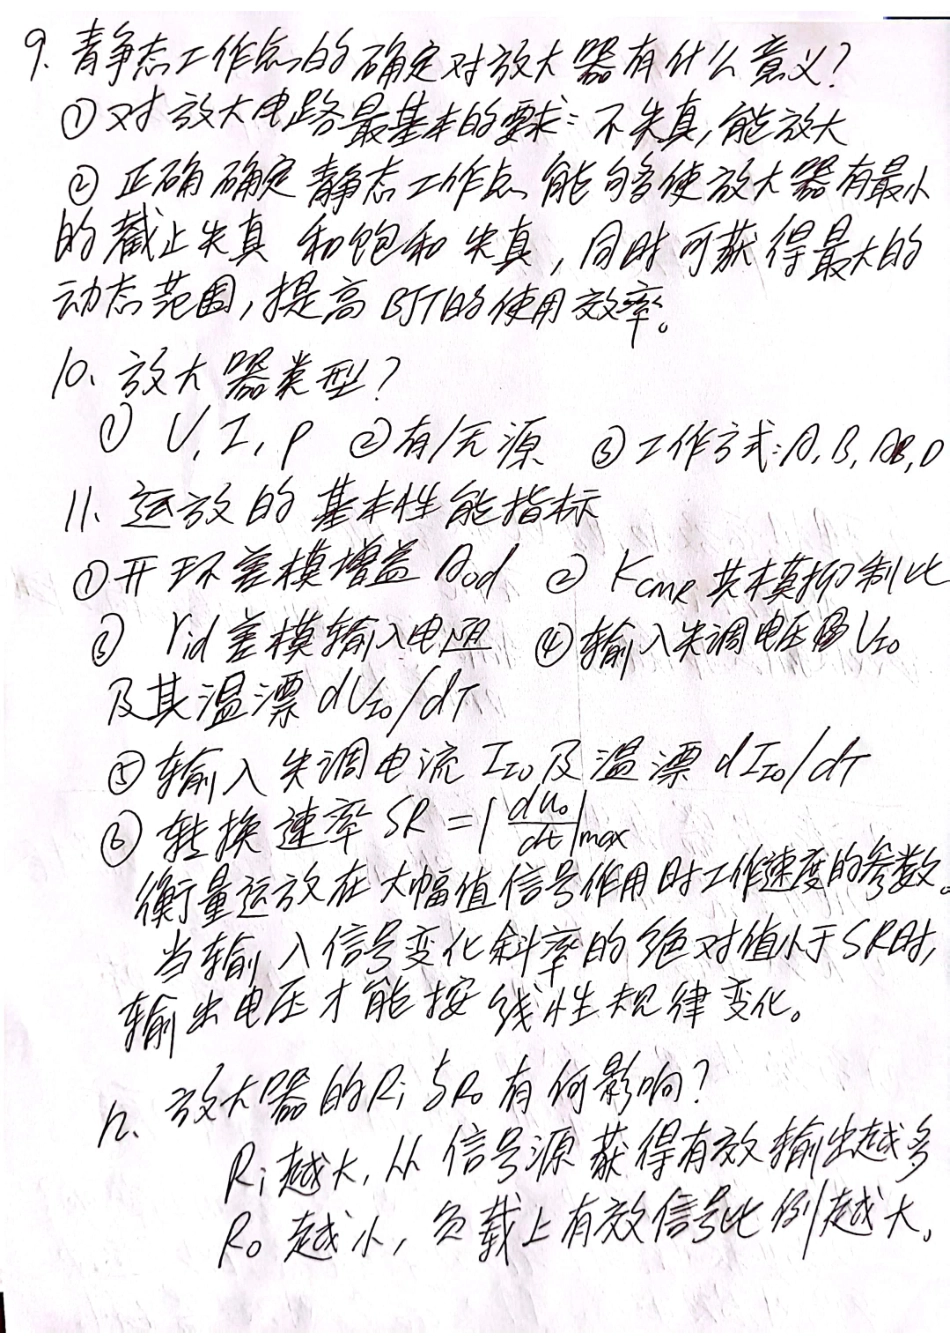 9. 静态工作点的确定对放大器有什么意义?
①对放大电路最基本的要求:不失真,能放大
②正确确定静态工作点能够使放大器有最小
的截止失真和饱和失真,同时可获得最大的
动态范围,提高BJT的使用效率。
10. 放大器类型?
① U, I, P ②有/无源 ③工作方式:A, B, AB, D
11. 运放的基本性能指标
①开环差模增益 Aod ② KCMR 共模抑制比
③ rid 差模输入电阻 ④输入失调电压 UIO
及其温漂 dUIO/dT
⑤输入失调电流 IIO 及温漂 dIIO/dT
⑥转换速率 SR = |duo/dt|max
衡量运放在大幅值信号作用时工作速度的参数。
当输入信号变化斜率的绝对值小于SR时,
输出电压才能按线性规律变化。
12. 放大器的Ri与Ro有何影响?
Ri越大,从信号源获得有效输出越多
Ro越小,负载上有效信号比例越大。